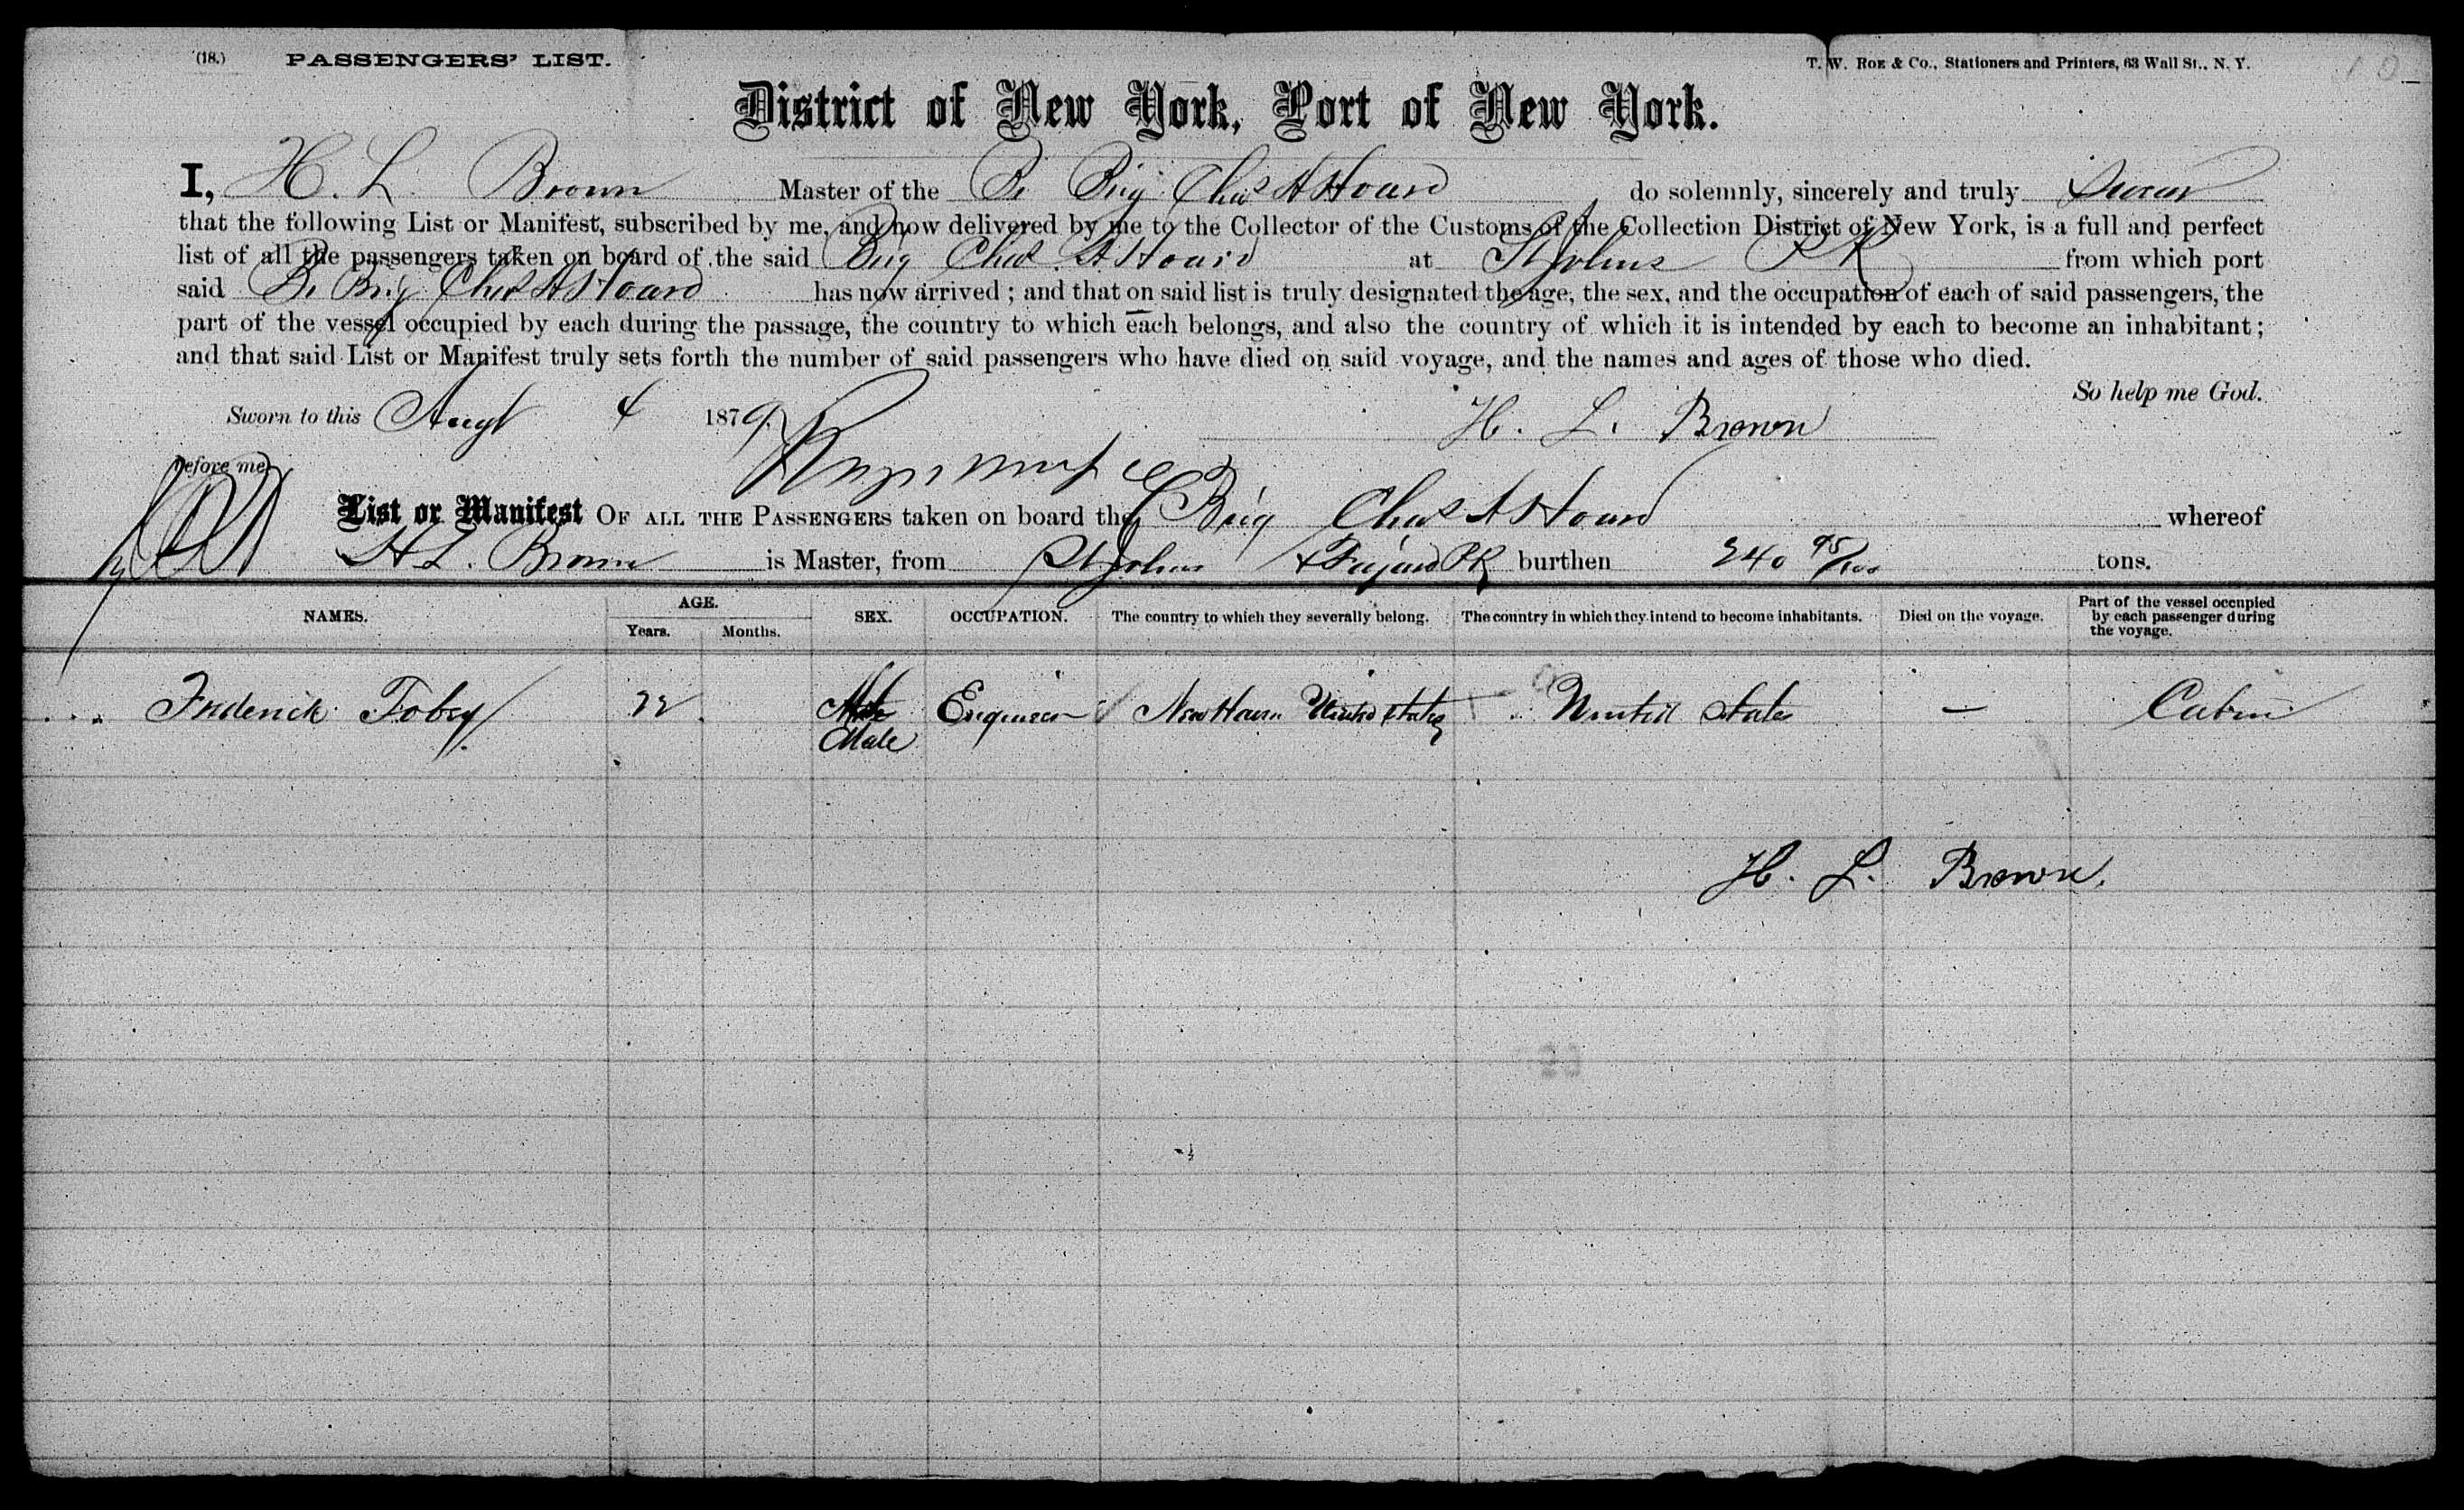 (18.) PASSENGERS' LIST. T. W. ROE & CO., Stationers and Printers, 63 Wall St., N. Y.
District of New York, Port of New York.
I, H. L. Brown Master of the Br Brig Chas A Hoard do solemnly, sincerely and truly Swear
that the following List or Manifest, subscribed by me, and now delivered by me to the Collector of the Customs of the Collection District of New York, is a full and perfect
list of all the passengers taken on board of the said Brig Chas. A. Hoard at St Johns PR from which port
said Br Brig Chas A Hoard has now arrived; and that on said list is truly designated the age, the sex, and the occupation of each of said passengers, the
part of the vessel occupied by each during the passage, the country to which each belongs, and also the country of which it is intended by each to become an inhabitant;
and that said List or Manifest truly sets forth the number of said passengers who have died on said voyage, and the names and ages of those who died.
So help me God.
Sworn to this Augt 4 1879. H. L. Brown
before me
List or Manifest OF ALL THE PASSENGERS taken on board the Brig Chas A Hoard whereof
H L. Brown is Master, from St Johns & Fajard PR burthen 240 95/100 tons.
NAMES. AGE. Years. Months. SEX. OCCUPATION. The country to which they severally belong. The country in which they intend to become inhabitants. Died on the voyage. Part of the vessel occupied by each passenger during the voyage.
Frederick Tobey 22 Male Engineer New Haven United States United States — Cabin
Male
H. L. Brown.